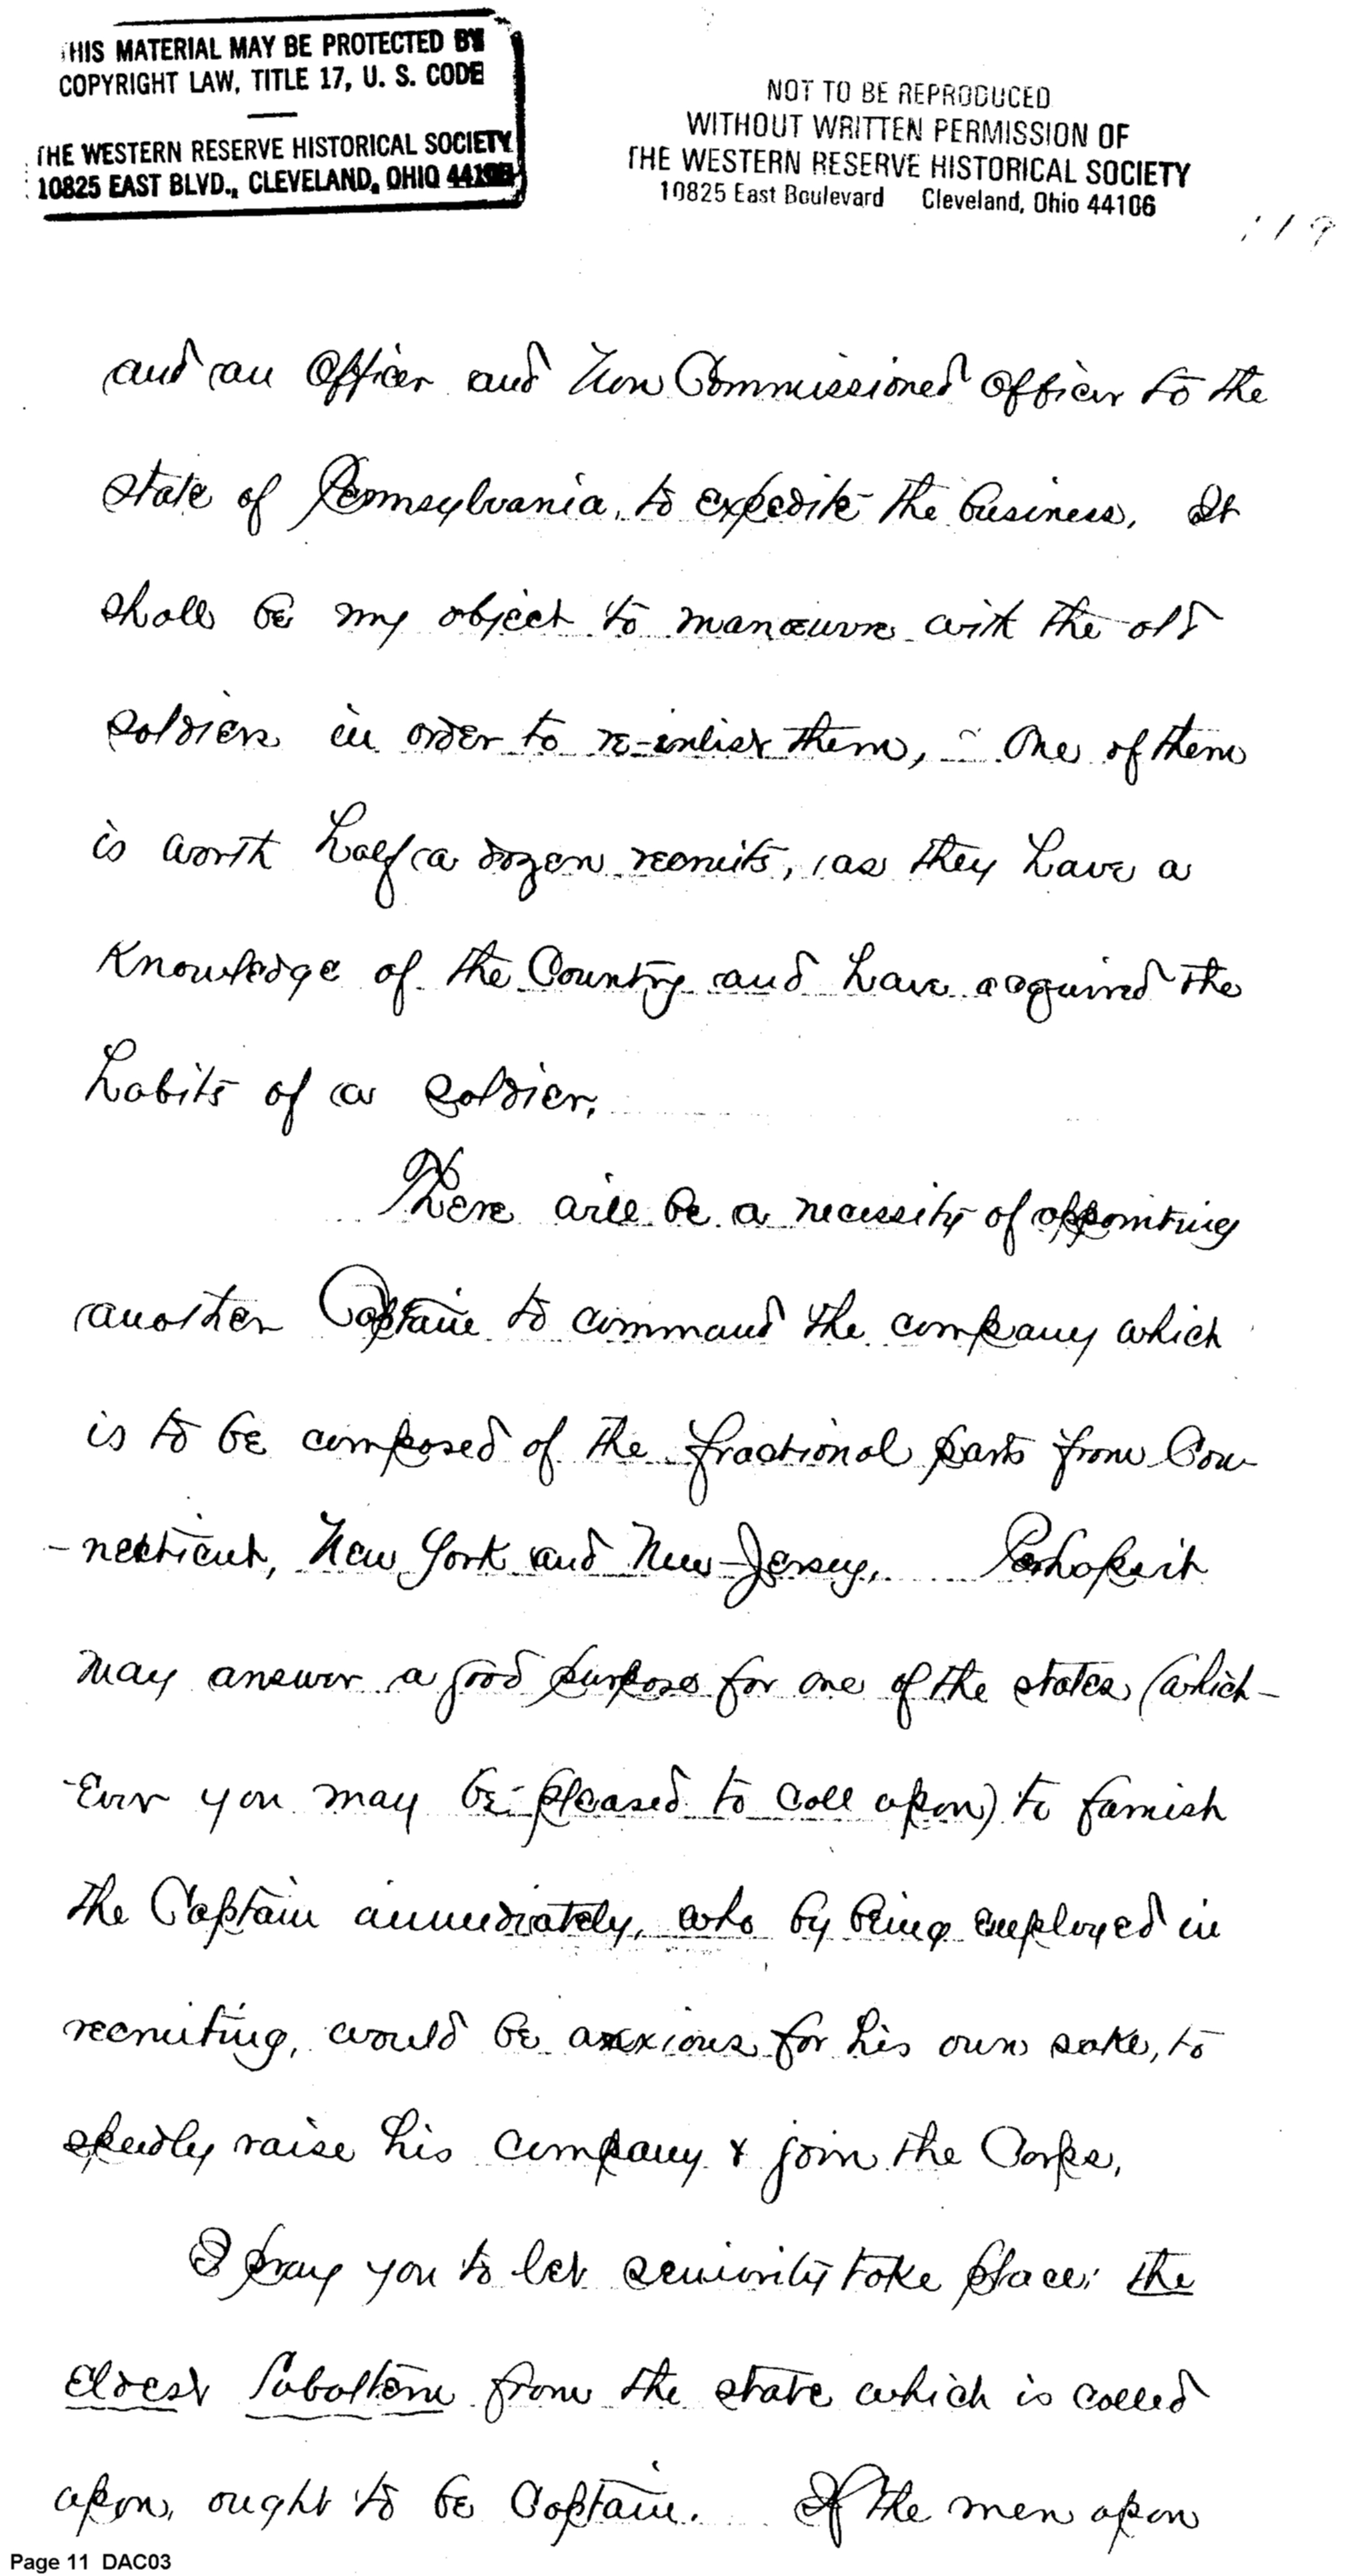 THIS MATERIAL MAY BE PROTECTED BY
COPYRIGHT LAW, TITLE 17, U. S. CODE
THE WESTERN RESERVE HISTORICAL SOCIETY
10825 EAST BLVD., CLEVELAND, OHIO 44106
NOT TO BE REPRODUCED
WITHOUT WRITTEN PERMISSION OF
THE WESTERN RESERVE HISTORICAL SOCIETY
10825 East Boulevard Cleveland, Ohio 44106
119
and an Officer and Non Commissioned officer to the
state of Pennsylvania, to expedite the business. It
shall be my object to manœuvre with the old
soldiers in order to re-inlist them, - One of them
is worth half a dozen recruits, as they have a
knowledge of the Country and have acquired the
habits of a soldier.
There will be a necessity of appointing
another Captain to command the company which
is to be composed of the fractional parts from Con-
-necticut, New York and New-Jersey. Perhaps it
may answer a good purpose for one of the states (which-
-ever you may be pleased to call upon) to furnish
the Captain immediately, who by being employed in
recruiting, would be anxious for his own sake, to
speedly raise his company & join the Corps.
I pray you to let seniority take place; the
eldest Subaltern from the state which is called
upon, ought to be Captain. If the men upon
Page 11 DAC03